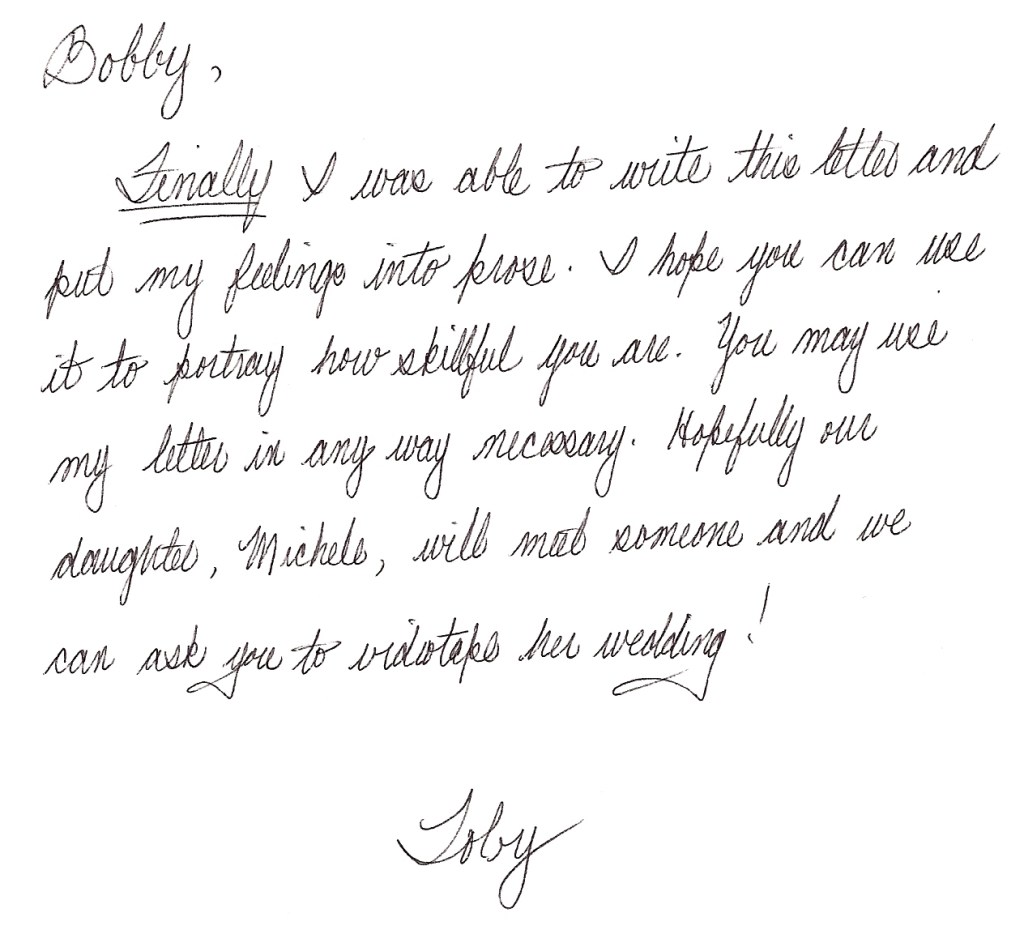 Bobby,
Finally I was able to write this letter and
put my feelings into prose. I hope you can use
it to portray how skillful you are. You may use
my letter in any way necessary. Hopefully our
daughter, Michele, will meet someone and we
can ask you to videotape her wedding!
Toby